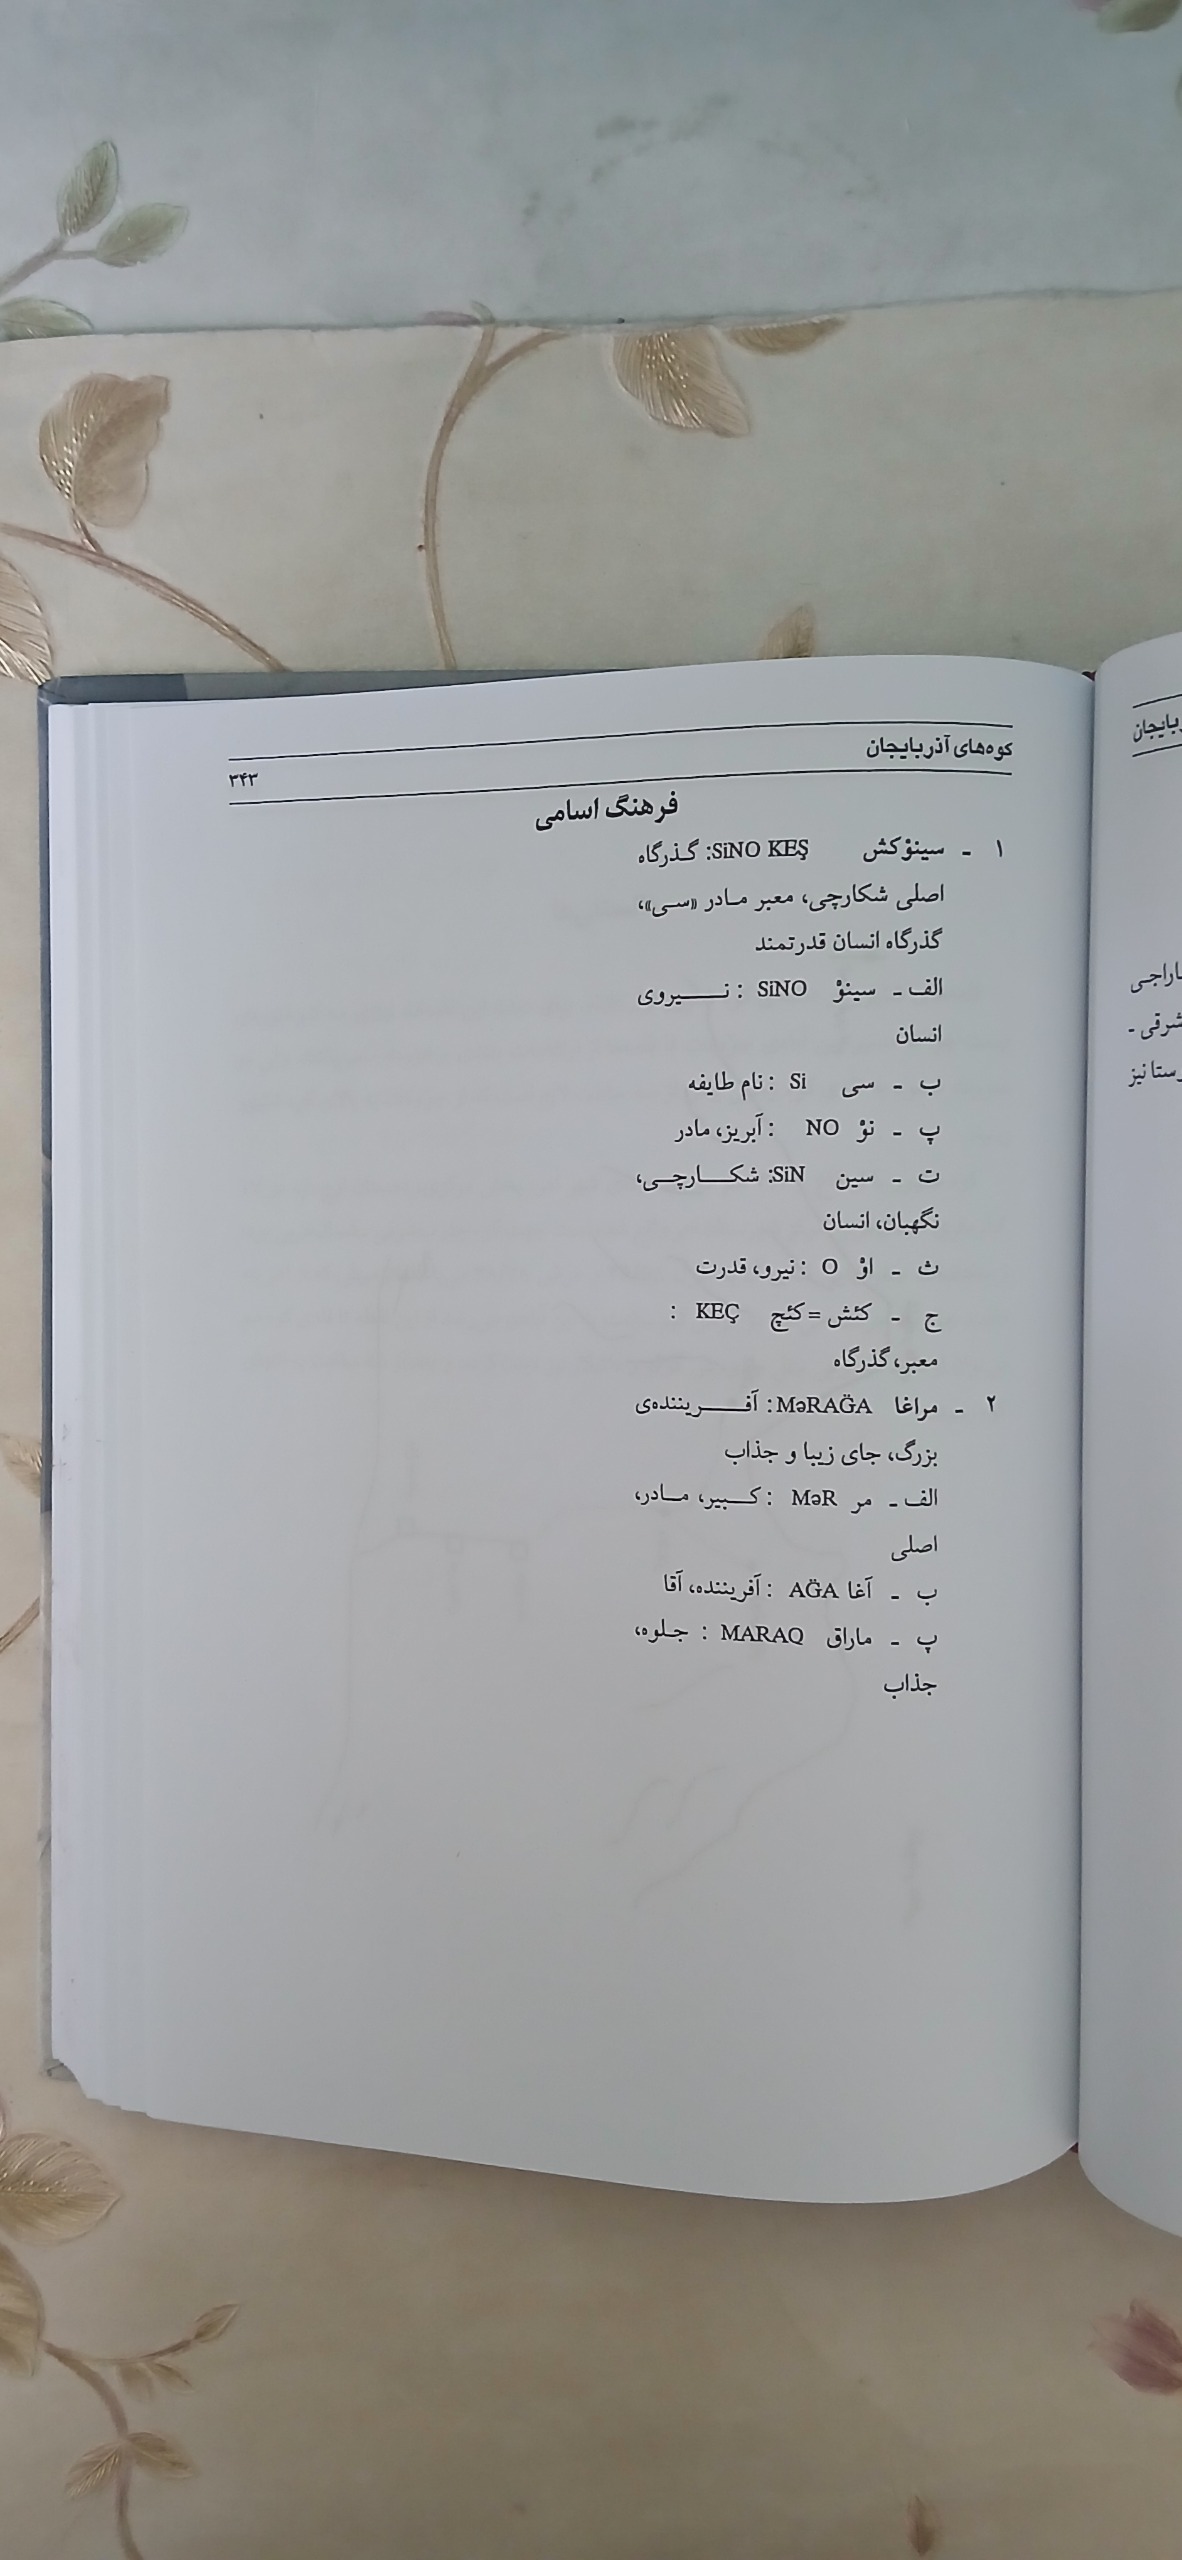 کوه‌های آذربایجان
۳۴۳
فرهنگ اسامی
۱ ـ سینوْکش SiNO KEŞ: گذرگاه
اصلی شکارچی، معبر مادر «سی»،
گذرگاه انسان قدرتمند
الف ـ سینوْ SiNO : نیروی
انسان
ب ـ سی Si : نام طایفه
پ ـ نوْ NO : آبریز، مادر
ت ـ سین SiN: شکارچی،
نگهبان، انسان
ث ـ اوْ O : نیرو، قدرت
ج ـ کئش = کئچ KEÇ :
معبر، گذرگاه
۲ ـ مراغا MəRAĞA : آفریننده‌ی
بزرگ، جای زیبا و جذاب
الف ـ مر MəR : کبیر، مادر،
اصلی
ب ـ آغا AĞA : آفریننده، آقا
پ ـ ماراق MARAQ : جلوه،
جذاب
شرقی ـ